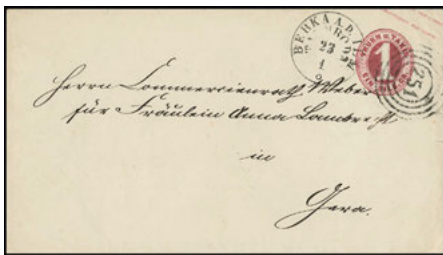 BERKA A.D. ILM
23
1
THURN U. TAXIS
1
251
Herrn Commercienrath Weber
für Fräulein Anna Lambrecht
in
Gera.